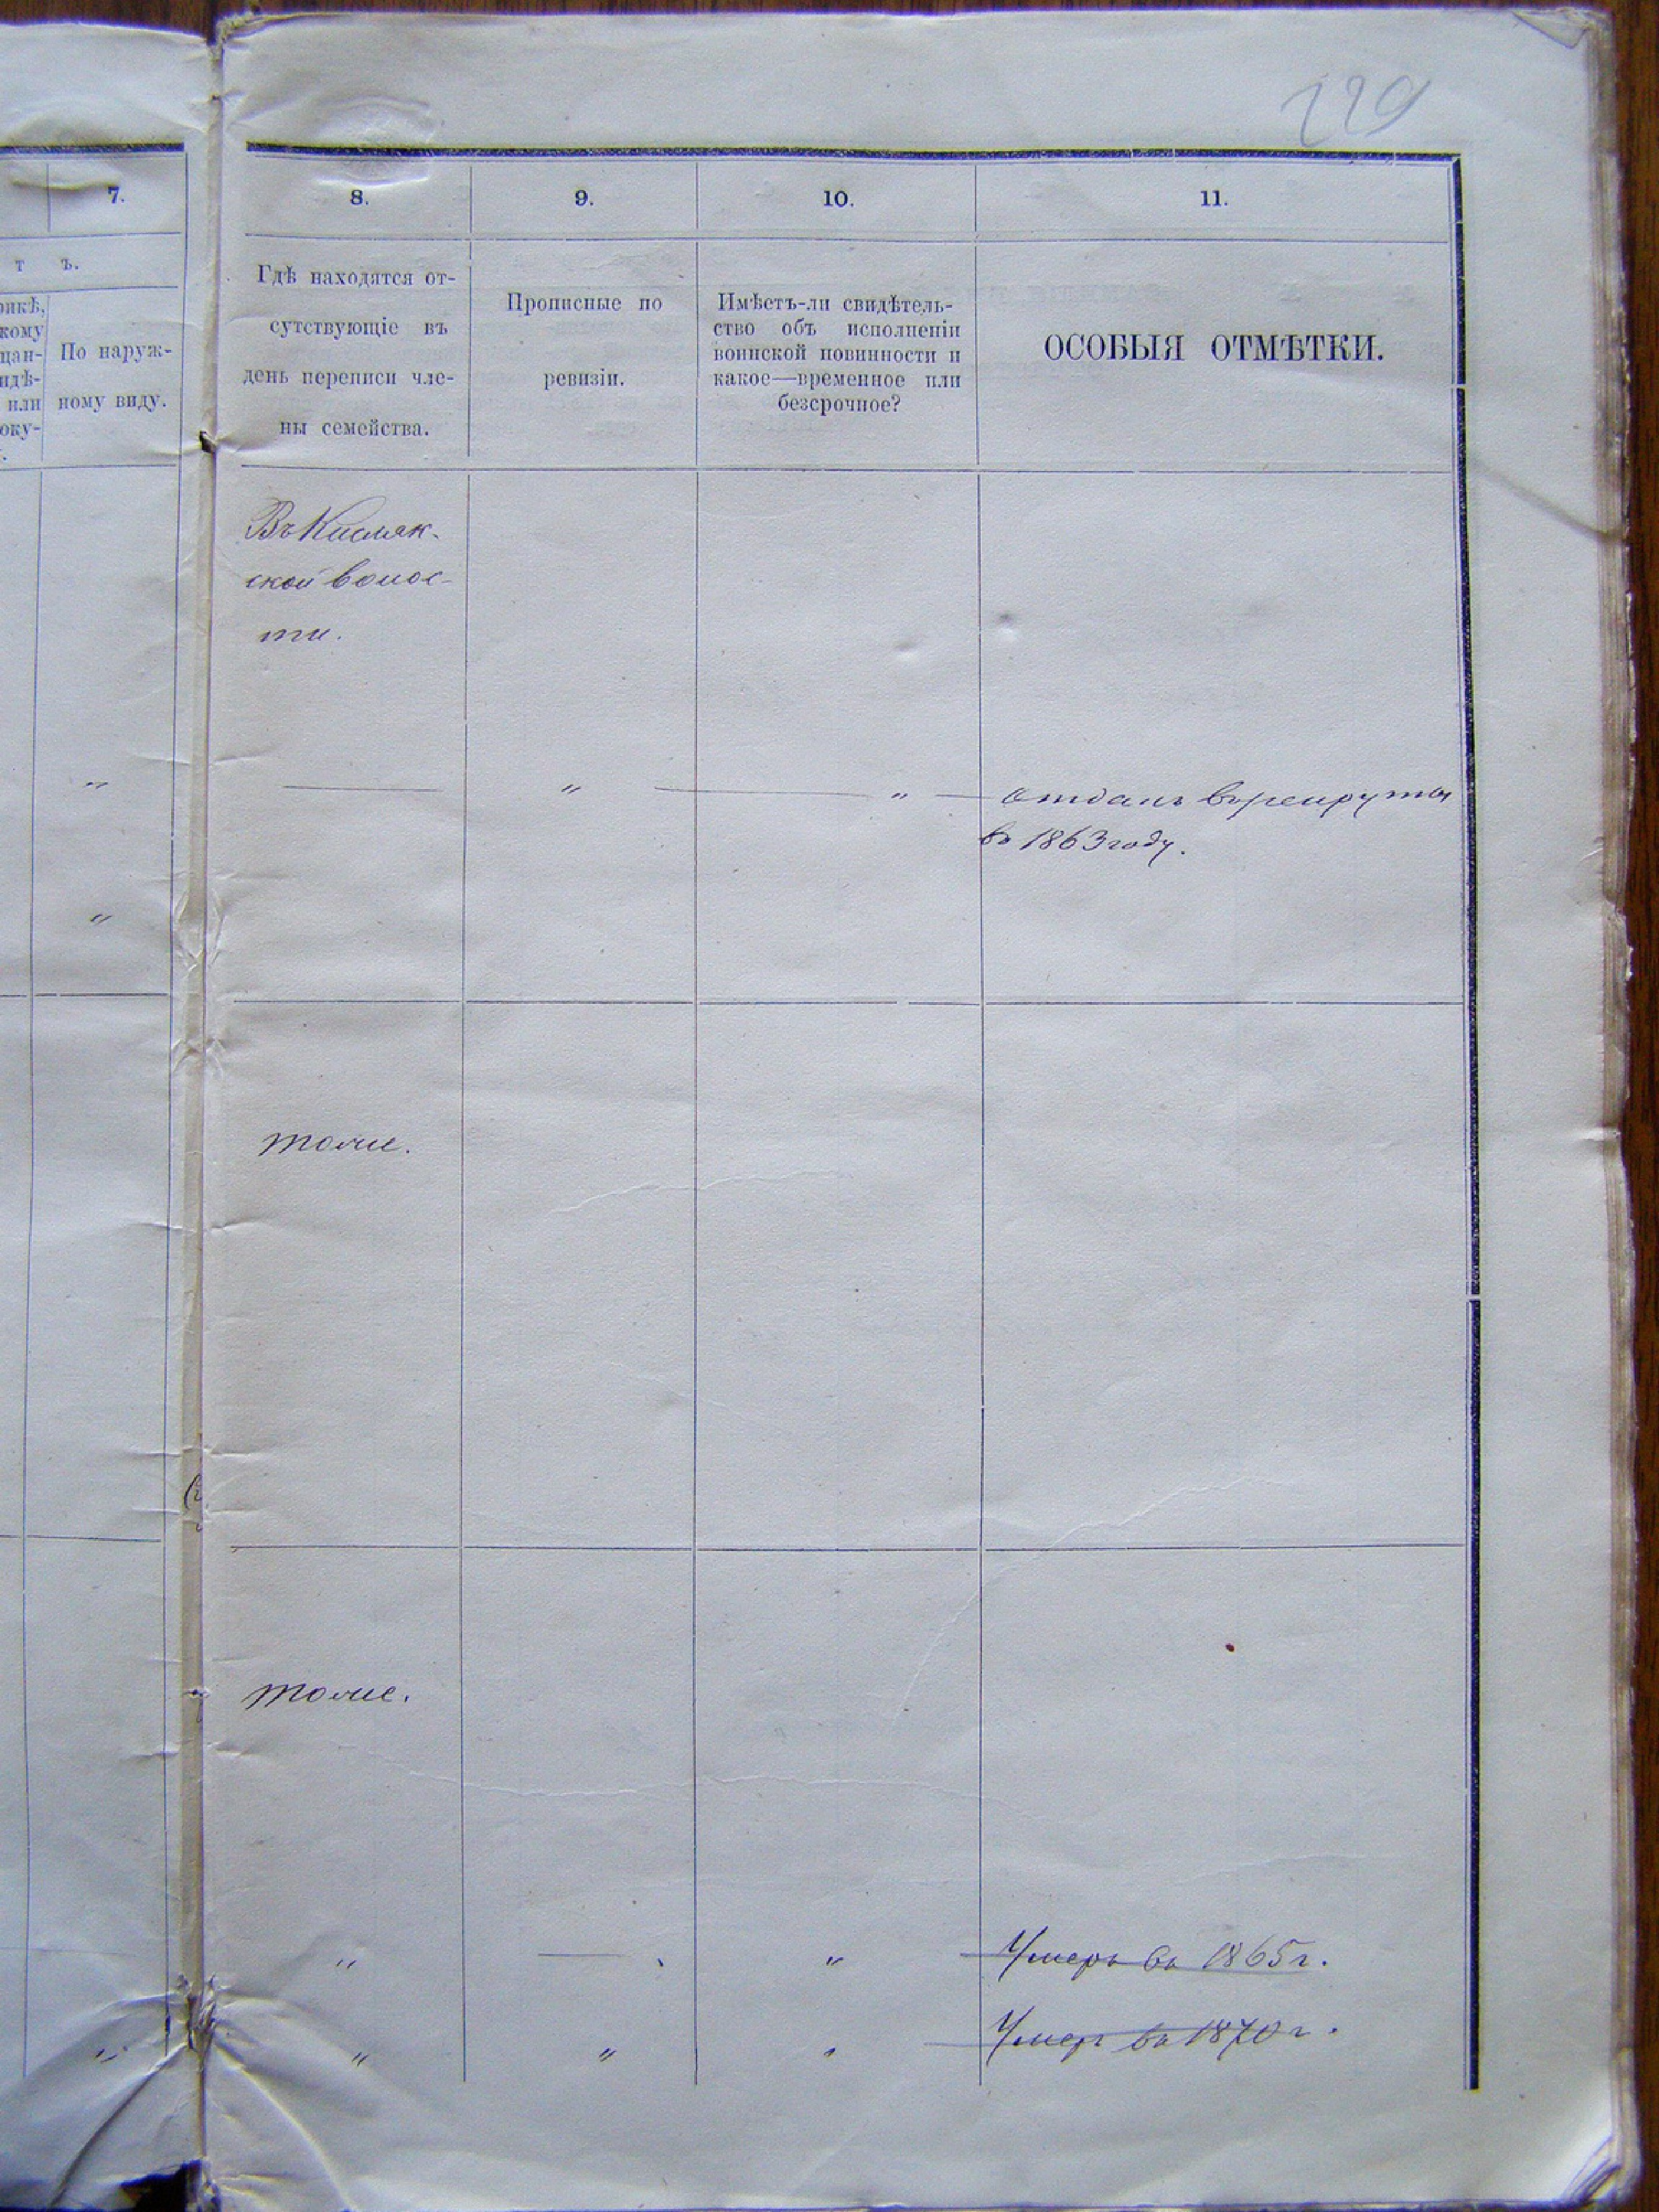 229
7.
8.
9.
10.
11.
т ъ.
По наруж-
ному виду.
Гдѣ находятся от-
сутствующіе въ
день переписи чле-
ны семейства.
Прописные по
ревизіи.
Имѣетъ-ли свидѣтель-
ство объ исполненіи
воинской повинности и
какое—временное или
безсрочное?
ОСОБЫЯ ОТМѢТКИ.
Въ Кисляк-
ской волос-
ти.
" " " отданъ в рекруты
въ 1863 году.
"
тоже.
тоже.
" " Умеръ въ 1865 г.
" " " " Умеръ въ 1870 г.